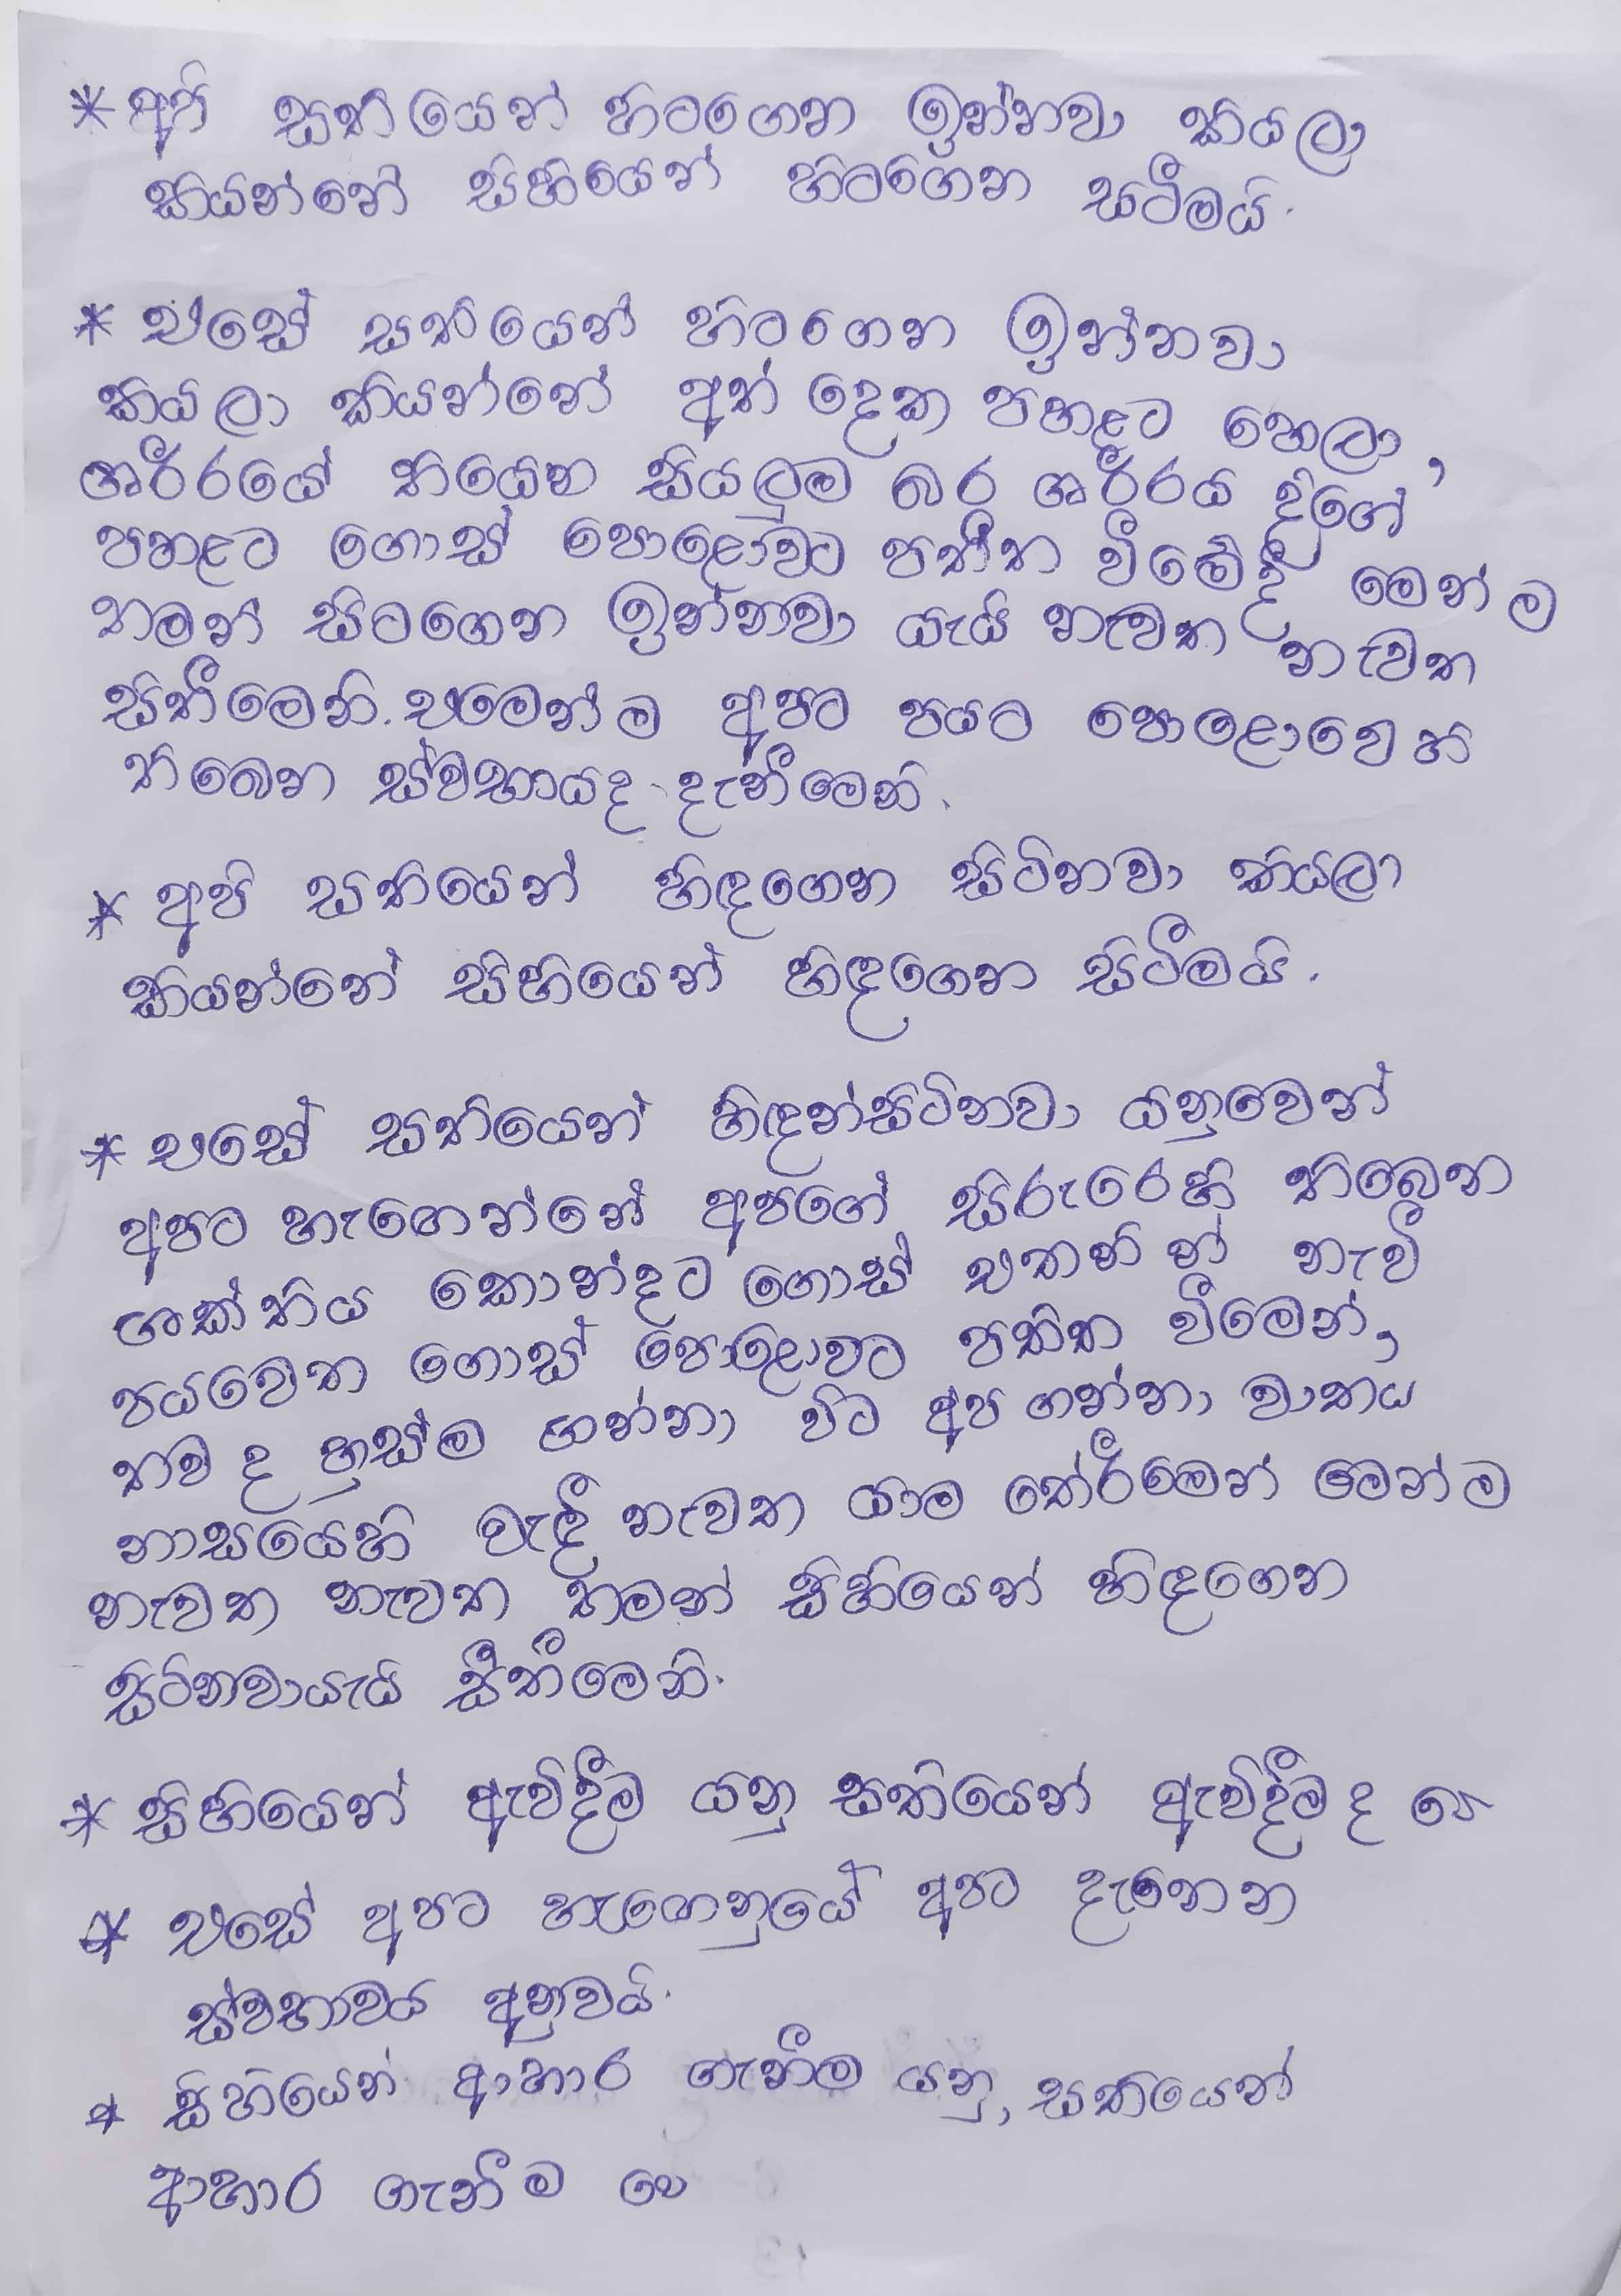 * අපි සතියෙන් හිටගෙන ඉන්නවා කියලා
කියන්නේ සිහියෙන් හිටගෙන සටීමයි.
* එසේ සතියෙන් හිටගෙන ඉන්නවා
කියලා කියන්නේ අත් දෙක පහළට හෙලා,
ශරීරයේ තියෙන සියලුම බර ශරීරය දිගේ
පහළට ගොස් පොළොවට පතීත වීමේදී මෙන්ම
තමන් සිටගෙන ඉන්නවා යැයි නැවත නැවත
සිතීමෙනි. එමෙන්ම අපට පයට පොළොවෙහි
තිබෙන ස්වභායද දැනීමෙනි.
* අපි සතියෙන් හිඳගෙන සිටිනවා කියලා
කියන්නේ සිහියෙන් හිඳගෙන සිටීමයි.
* එසේ සතියෙන් හිඳන්සිටිනවා යනුවෙන්
අපට හැඟෙන්නේ අපගේ සිරුරෙහි තිබෙන
ශක්තිය කොන්දට ගොස් එතනින් නැවී
පයවෙත ගොස් පොළොවට පතිත වීමෙන්,
තව ද හුස්ම ගන්නා විට අප ගන්නා වාතය
නාසයෙහි වැඳී නැවත යාම තේරීමෙන් මෙන්ම
නැවත නැවත තමන් සිහියෙන් හිඳගෙන
සිටිනවායැයි සීතීමෙනි.
* සිහියෙන් ඇවිදීම යනු සතියෙන් ඇවිදීම ද වේ
* එසේ අපට හැඟෙනුයේ අපට දැනෙන
ස්වභාවය අනුවයි.
* සිහියෙන් ආහාර ගැනීම යනු, සතියෙන්
ආහාර ගැනීම වේ